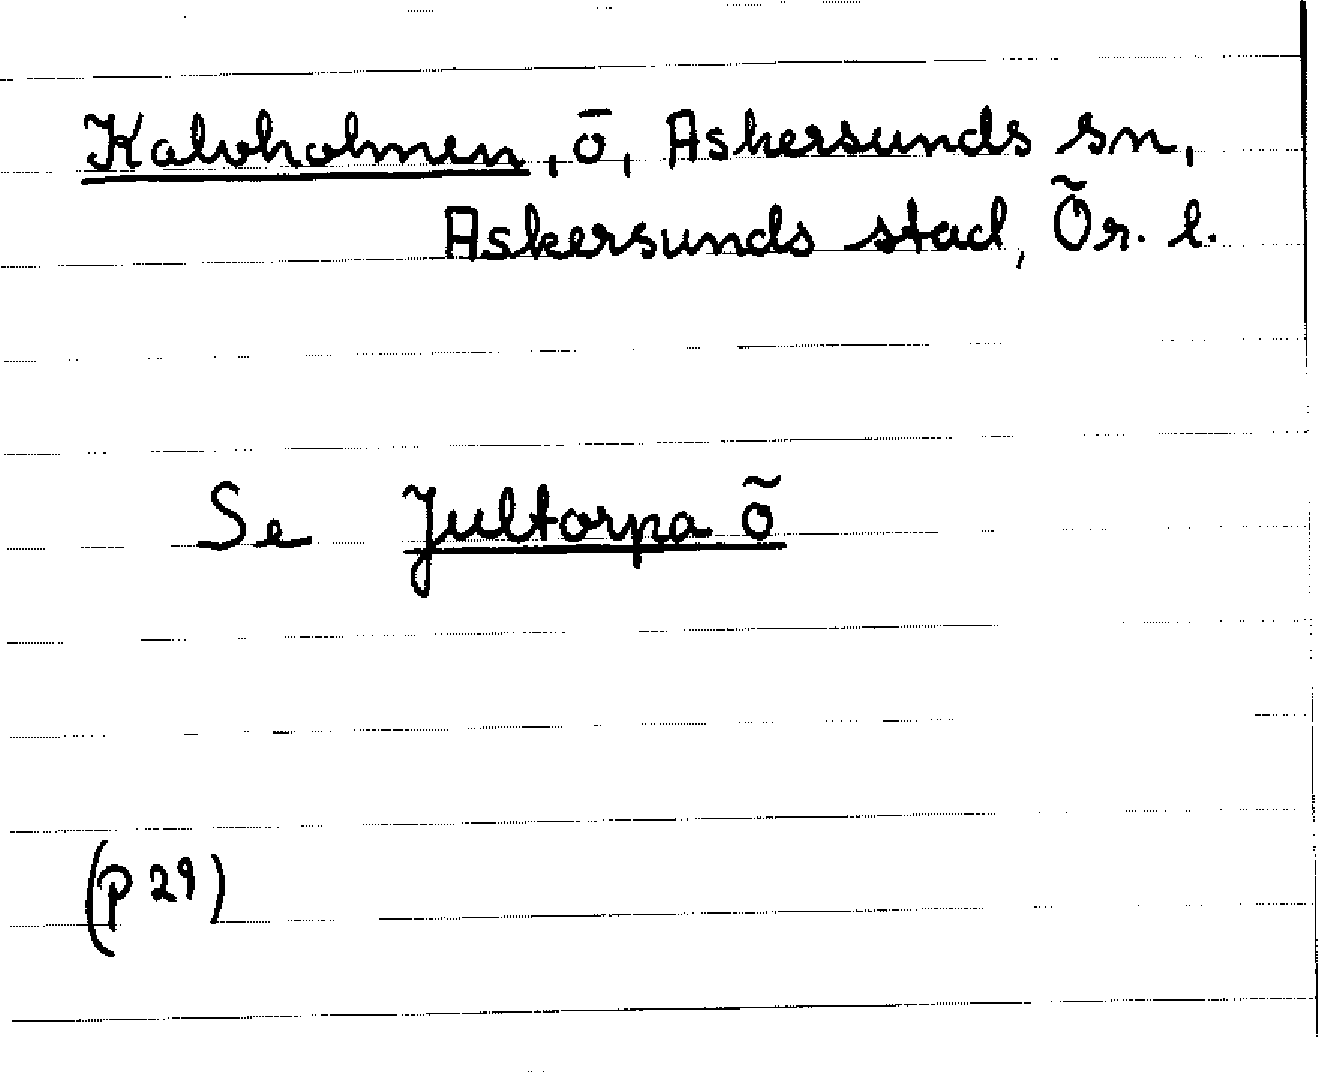 Kalvholmen, ö, Askersunds sn,
Askersunds stad, Ör. l.
Se Jultorpa ö
(p 29)